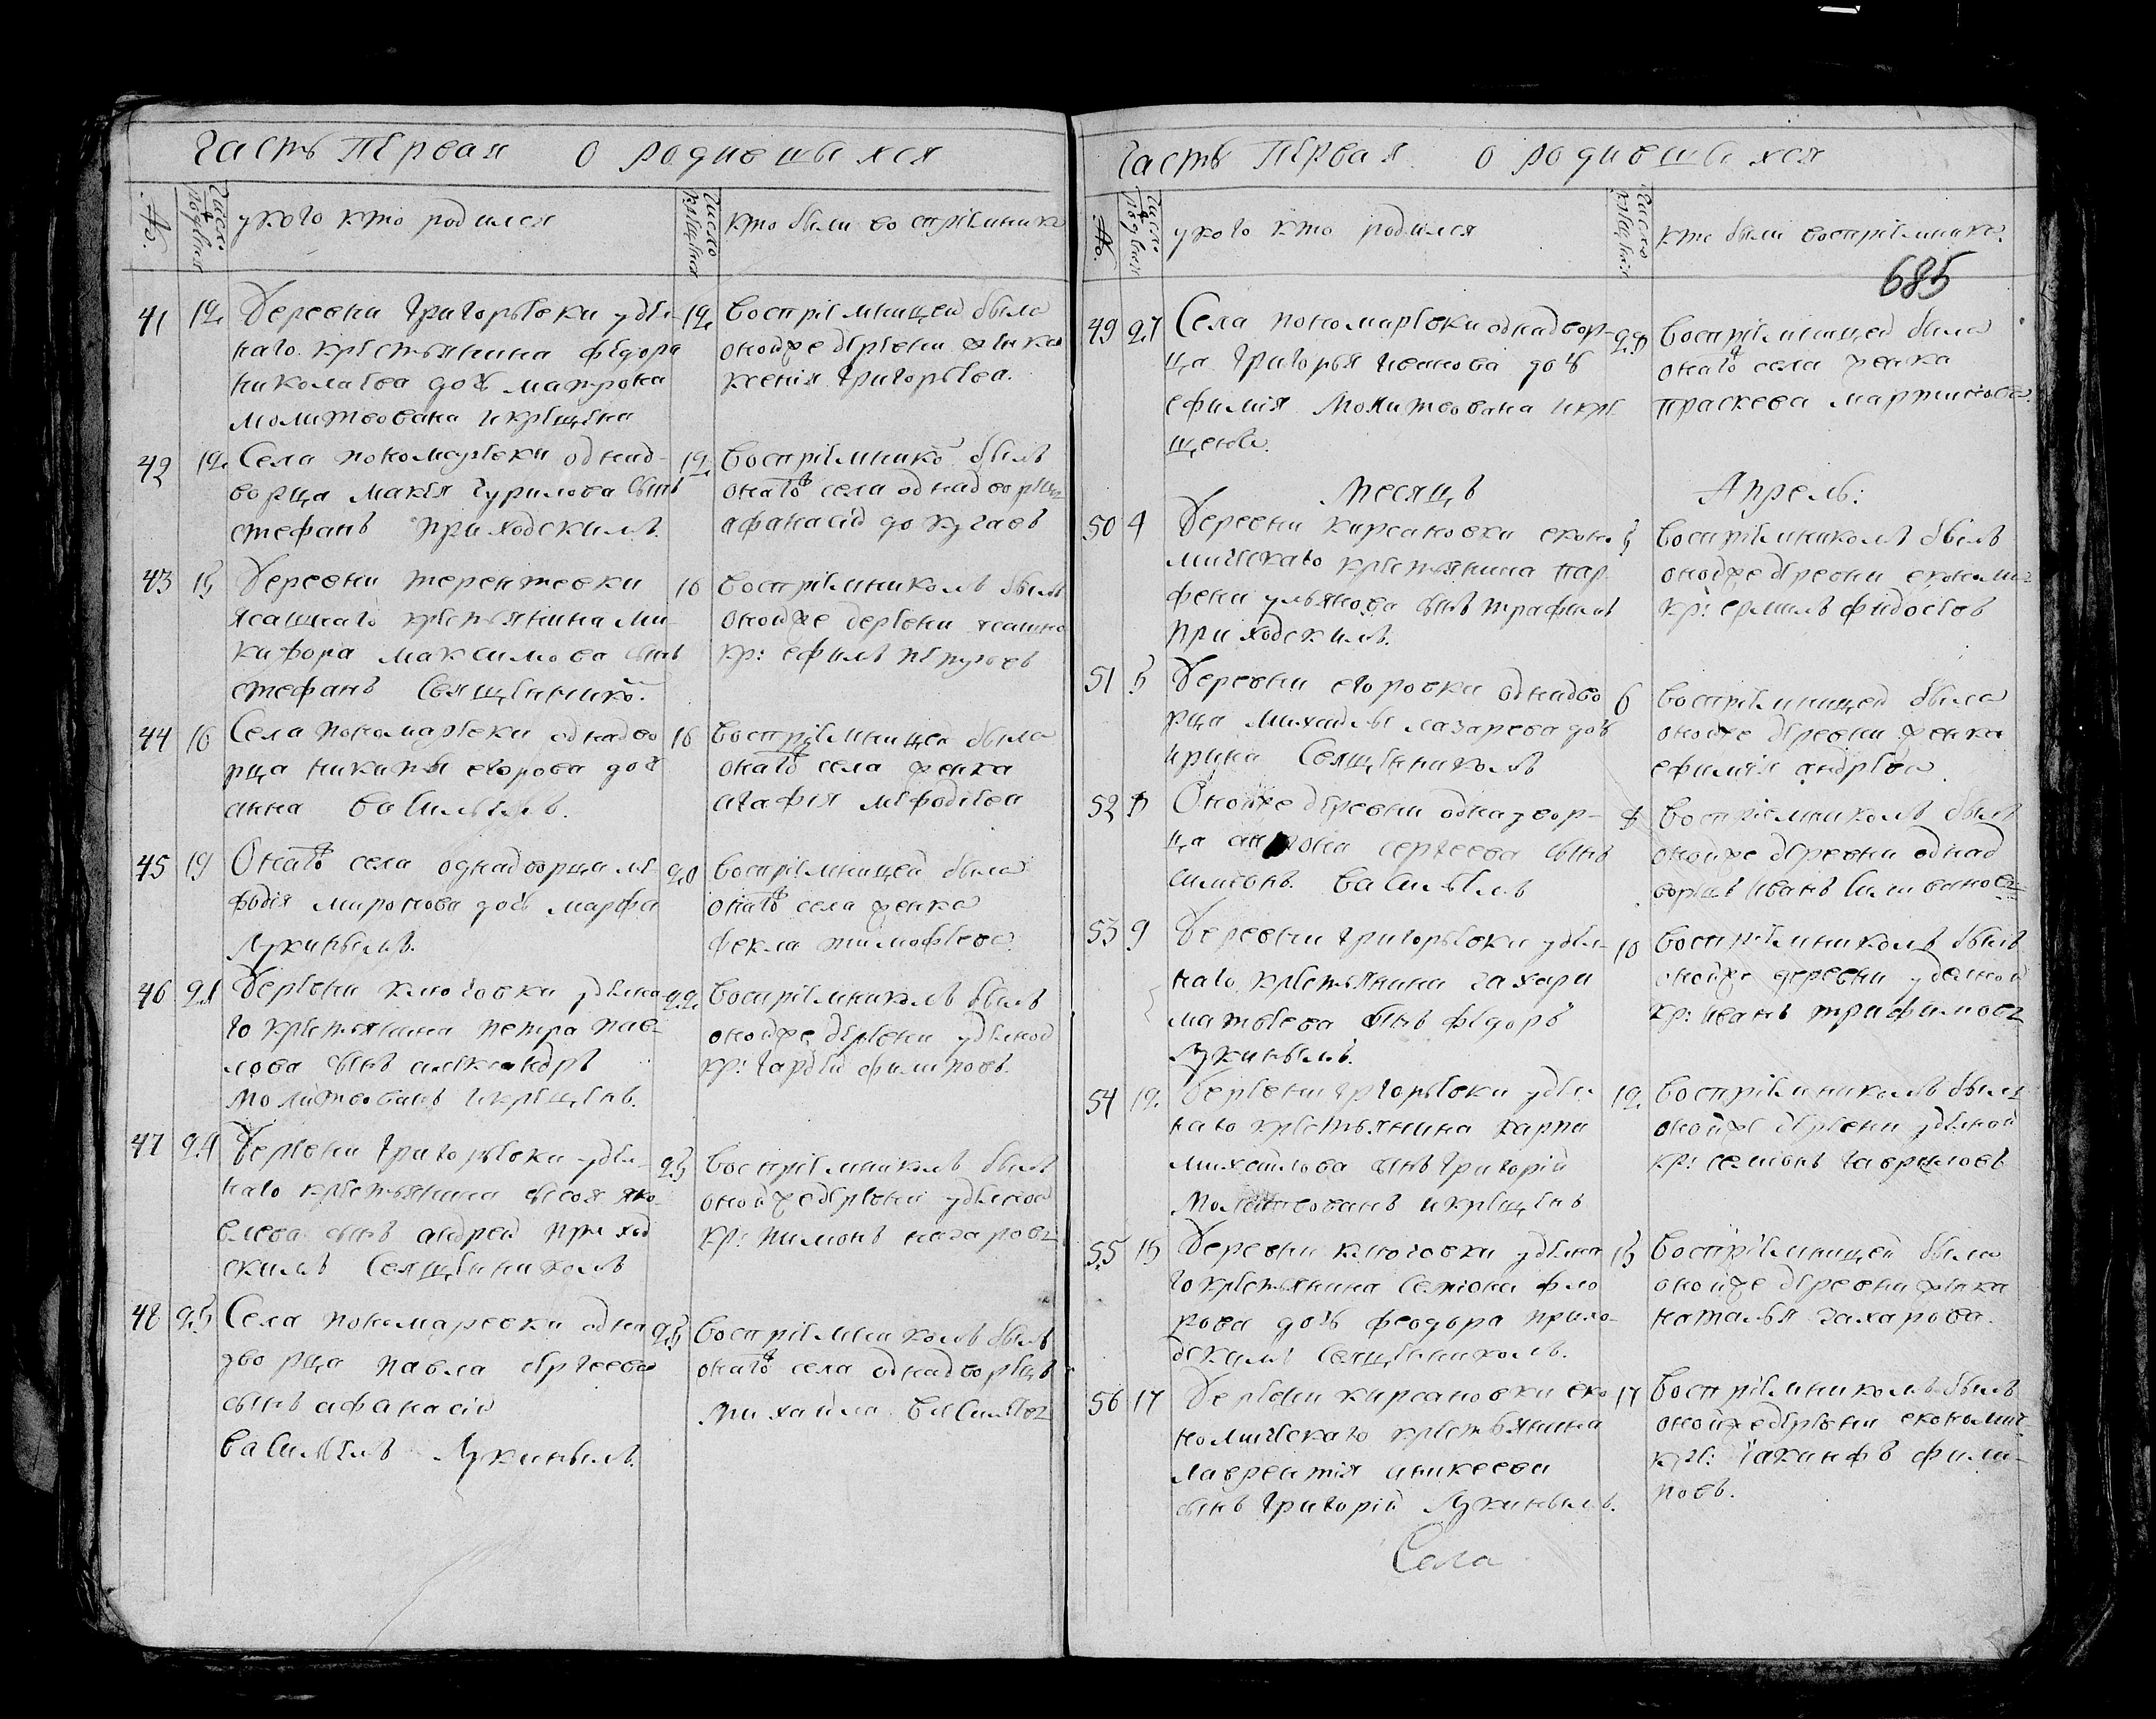 Часть Первая о родившыхся
№.
Число рождения
у кого кто родился
Число крещения
кто были восприемники
41 12 Деревни Григорьевки удел-
наго крестьянина Федора
николаева дочь матрона
молитвована и крещена
12 Восприемницей была
оной же деревни женка
ксенія Григорьева.
42 12 Села пономарьевки однад-
ворца макея Гурилова сынъ
стефанъ приходскимъ.
12 Восприемнико былъ
онаго села однадворецъ
афанасій докучаевъ
43 15 Деревни терентевки
ясашнаго крестьянина ми-
кифора максимова сынъ
стефанъ Священнико.
16 Восприемникомъ былъ
оной же деревни ясашно
кр: ефимъ пепуговъ
44 16 Села пономарьевки однадво
рца никиты егорова дочь
анна Васильемъ.
16 Восприемницей была
онаго села женка
агафія мефодіева
45 19 Онаго села однадворца ме
фодія миронова дочь марфа
Лукинымъ.
20 Восприемницей была
онаго села женка
фекла тимофеева
46 21 Деревни ключовки уделна
го крестьянина петра пав-
лова сынъ александръ
молитвованъ и крещенъ.
22 Восприемникомъ былъ
оной же деревни уделной
кр: Гардей филиповъ.
47 24 Деревни Григорьевки удел-
наго крестьянина сысоя яко-
влева сынъ андрей приход
скимъ Священникомъ
25 Восприемникомъ былъ
оной же деревни уделной
кр: пимонъ назаровъ
48 25 Села пономаревки одна
дворца павла сергеева
сынъ афанасій
Васильемъ Лукинымъ.
25 Восприемникомъ былъ
онаго села однадворецъ
михайла Васильевъ
Часть Первая о родившыхся
№.
Число рождения
у кого кто родился
Число крещения
кто были восприемники.
685
49 27 Села пономарьевки однадвор-
ца Григорья иванова дочь
ефимія молитвована и кре
щена.
28 Восприемницей была
онаго села женка
праскева мартинова.
Месяцъ Апрель:
50 4 Деревни кирсановки еконо
мическаго крестьянина пар
фена ульянова сынъ трафимъ
приходскимъ.
5 Восприемникомъ былъ
оной же деревни економич
кр: ермилъ фидосеевъ
51 5 Деревни егоровки однадво
рца михайлы лазарева дочь
ирина Священникомъ
6 Восприемницей была
оной же деревни женка
ефимія андреева.
52 8 Оной же деревни однадвор-
ца антона сергеева сынъ
симеонъ. Васильемъ
8 Восприемникомъ былъ
оной же деревни однад
ворецъ Иванъ Силивановъ
53 9 Деревни Григорьевки удел-
наго крестьянина захара
матвеева сынъ федоръ
Лукинымъ.
10 Восприемникомъ былъ
оной же деревни уделной
кр: иванъ трифимовъ
54 12. Деревни Григорьевки удел
наго крестьянина карпа
михайлова сынъ Григорій
молитвованъ и крещенъ
12. Восприемникомъ былъ
оной же деревни уделной
кр: семіонъ Гавриловъ
55 15 Деревни ключовки уделна
го крестьянина Семіона фло
рова дочь феодора прихо-
дскимъ Священникомъ.
15 Восприемницей была
оной же деревни женка
наталья захарова.
56 17 Деревни кирсановки еко
номическаго крестьянина
лаврентія аникеева
сынъ Григорій Лукинымъ.
17 Восприемникомъ былъ
оной же деревни економич
кре: іакинфъ фили-
повъ.
Села